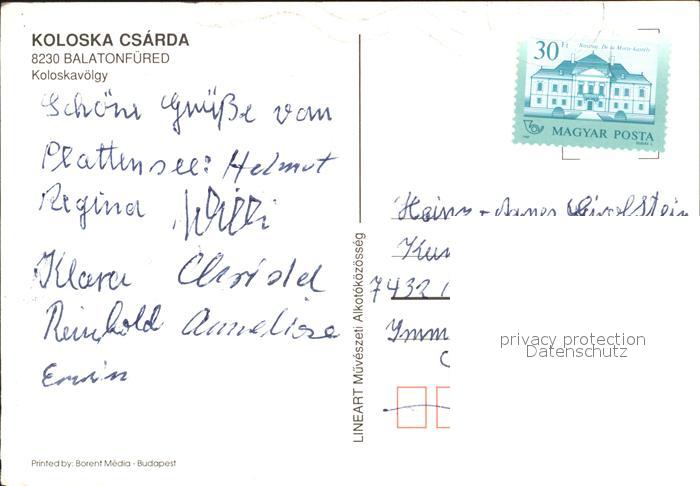 KOLOSKA CSÁRDA
8230 BALATONFÜRED
Koloskavölgy
Schöne Grüße vom
Plattensee: Helmut
Regina Willi
Klara Christel
Reinhold Anneliese
Erwin
Printed by: Borent Média - Budapest
LINEART Művészeti Alkotóközösség
30 Ft
MAGYAR POSTA
Heinz - Agnes
7432
Imm
privacy protection
Datenschutz